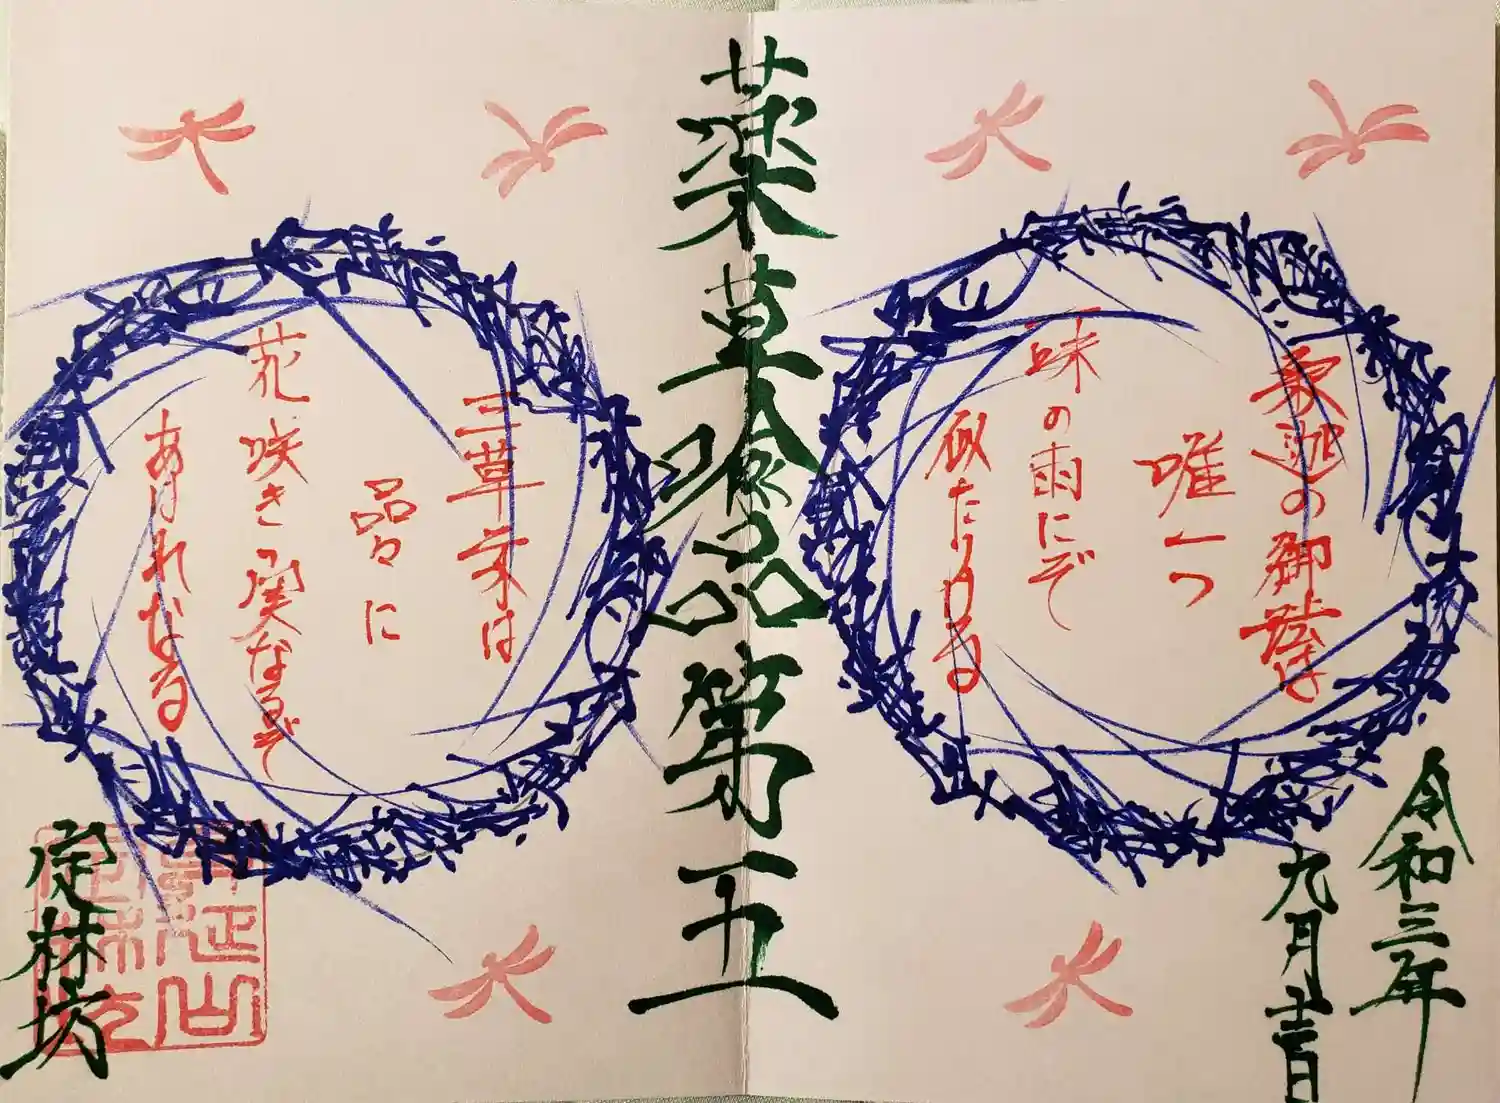 令和三年
九月
釈迦の御法は
唯一つ
一味の雨にぞ
似たりける
薬草喩品第五
三草二木は
品々に
花咲き実なるぞ
あはれなる
定林坊
身延山
定林坊